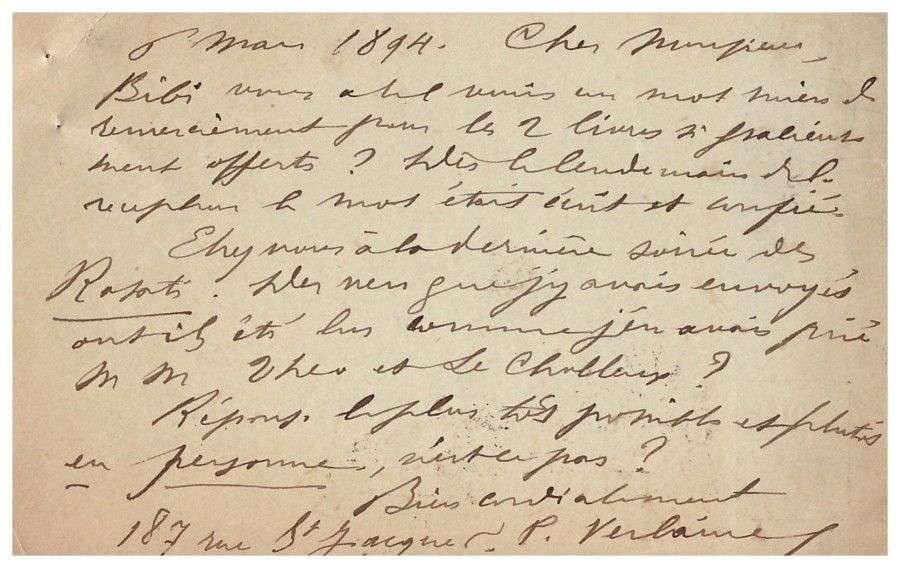 6 Mars 1894. Cher Monsieur,
Bibi vous a-t-il remis un mot mien de
remerciement pour les 2 livres si gracieuse
ment offerts ? Dès le lendemain de la
réception le mot était écrit et confié.
Etiez vous à la dernière soirée des
Rosati. Des vers que j'y avais envoyés
ont ils été lus comme j'en avais prié
MM Théo et Le Cholleux ?
Réponse le plus tôt possible et plutôt
en personne, n'est ce pas ?
Bien cordialement
187 rue St Jacques. P. Verlaine